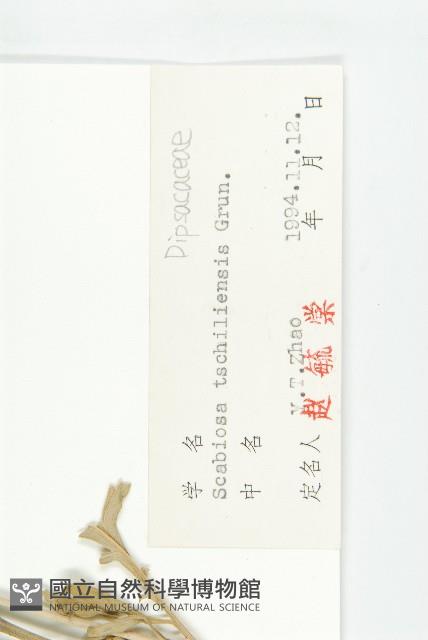 Dipsacaceae
学 名
Scabiosa tschiliensis Grun.
中 名
定名人 Y.T.Zhao 1994.11.12.
赵毓棠 年 月 日
國立自然科學博物館
NATIONAL MUSEUM OF NATURAL SCIENCE